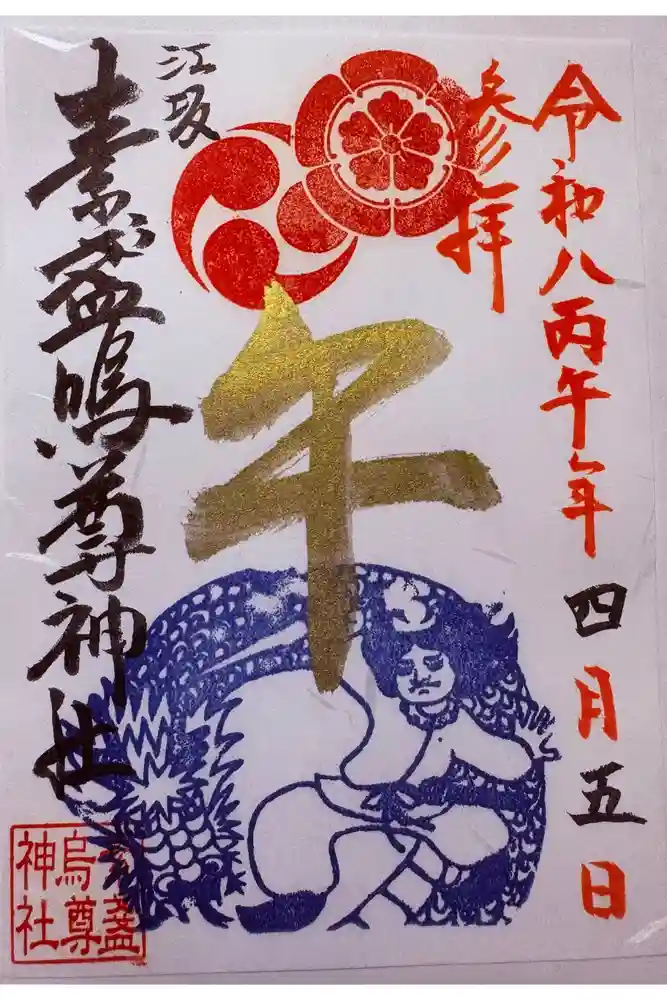 令和八丙午年四月五日
参拝
午
江坂
素盞嗚尊神社
素盞
嗚尊
神社